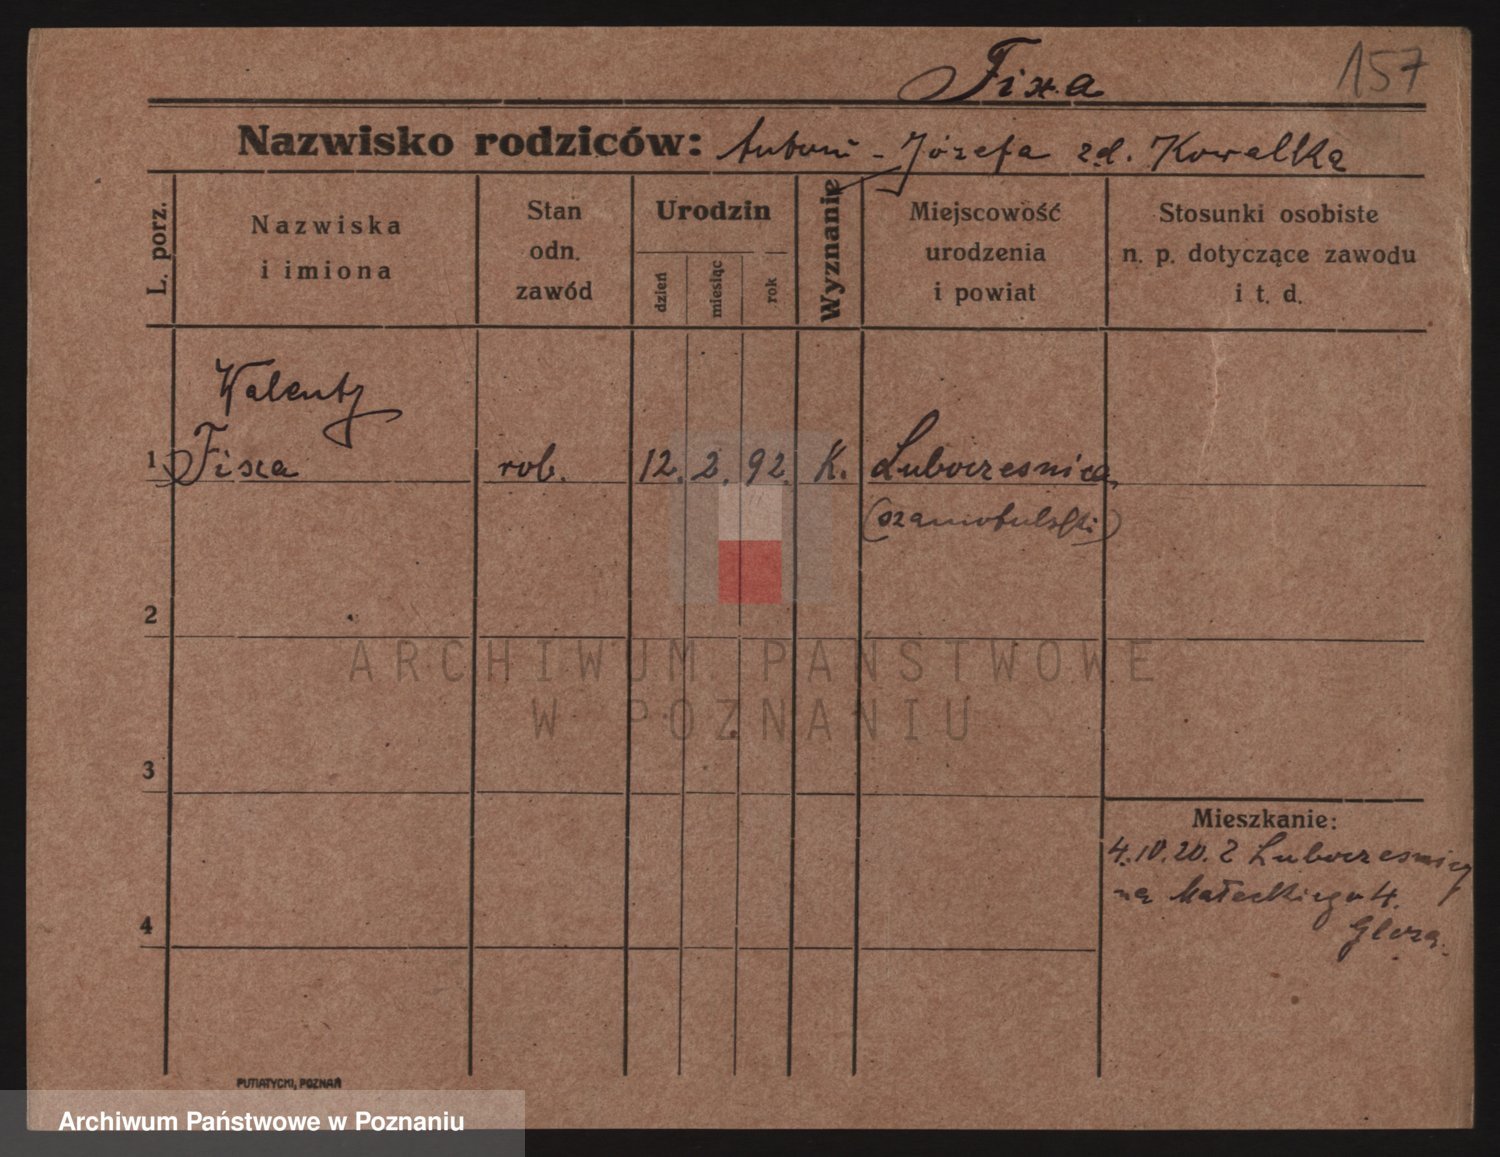 157
Fixa
Nazwisko rodziców: Antoni - Józefa zd. Kowalska
L. porz.
Nazwiska
i imiona
Stan
odn.
zawód
Urodzin
dzień
miesiąc
rok
Wyznanie
Miejscowość
urodzenia
i powiat
Stosunki osobiste
n. p. dotyczące zawodu
i t. d.
Walenty
1 Fixa rob. 12. 2. 92. K. Lubocześnica
(szamotulski)
2
3
4
Mieszkanie:
4.10.20. z Lubocześnicy
na Małeckiego 4.
PUTIATYCKI, POZNAŃ
ARCHIWUM PAŃSTWOWE
W POZNANIU
Archiwum Państwowe w Poznaniu